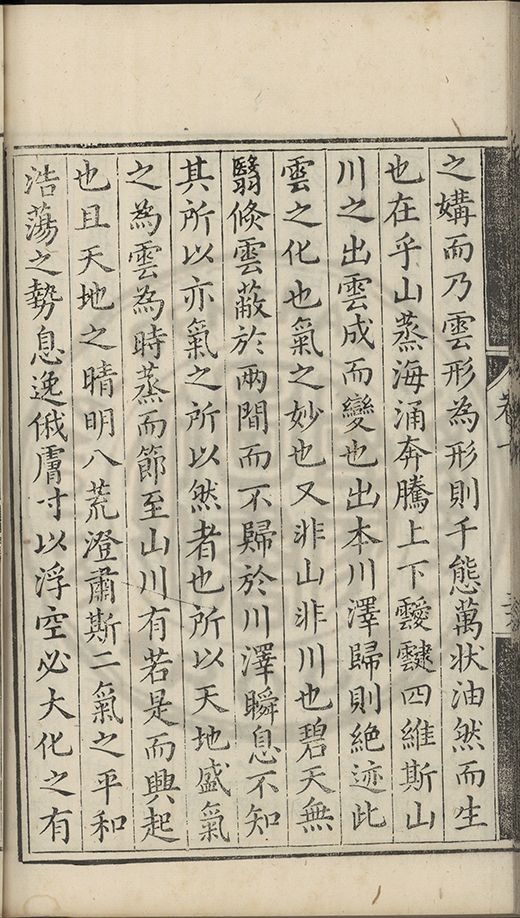 之媾而乃雲形為形則千態萬狀油然而生
也在乎山蒸海涌奔騰上下靉靆四維斯山
川之出雲成而變也出本川澤歸則絶迹此
雲之化也氣之妙也又非山非川也碧天無
翳倏雲蔽於兩間而不歸於川澤瞬息不知
其所以亦氣之所以然者也所以天地盛氣
之為雲為時蒸而節至山川有若是而興起
也且天地之晴明八荒澄肅斯二氣之平和
浩蕩之勢息逸俄膚寸以浮空必大化之有